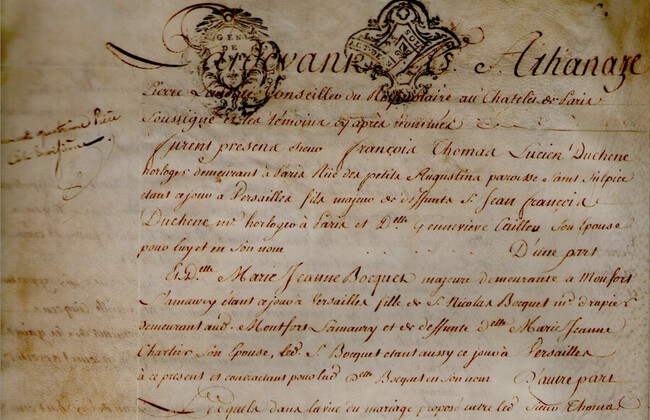 Pardevant Me. Athanaze
Pierre Conseiller du Roy Notaire au Chatelet de Paris
Soussigné et les témoins cy après
furent presens sieur François Thomas Lucien Duchene
horloger demeurant à Paris Rüe des petits Augustins paroisse Saint Sulpice
etant ce jour à Versailles fils majeur de deffunts S. Jean François
Duchene me. horloger à Paris et D.lle Genneviève Caillou Son Epouse
pour luy et en Son nom D'une part
Et D.lle Marie Jeanne Bocquet majeure demeurante à Monfort
Lamaury étant ce jour à Versailles fille de S. Nicolas Bocquet md. drapier
demeurant aud. Montfort Lamaury et de deffunte D.lle Marie Jeanne
Chartier Son Epouse, led. S. Bocquet etant aussy ce jour à Versailles
à ce present et contractant pour lad. D.lle Bocquet en Son nom D'autre part
Lesquels dans la vüe du mariage proposé entre led. Sieur Thomas